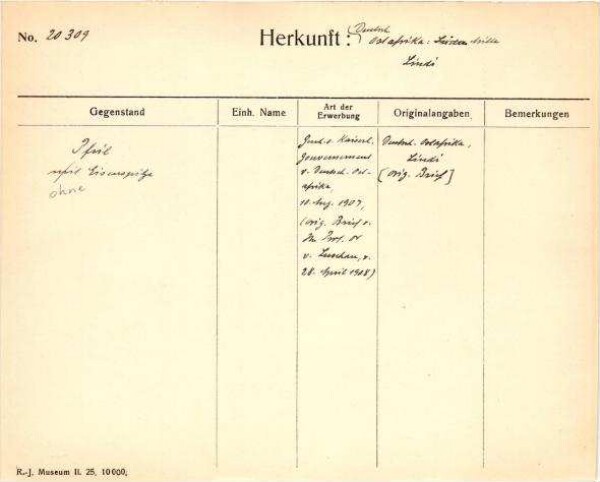 No. 20309
Herkunft: (Deutsch
Ostafrika: Küste
Lindi
Gegenstand
Einh. Name
Art der
Erwerbung
Originalangaben
Bemerkungen
Pfeil
mit Eisenspitze
ohne
v. Kaiserl.
Gouvernement
v. Deutsch-Ost-
afrika,
10. Aug. 1907,
(orig. Brief v.
Hn Prof. Dr
v. Luschan, v.
28. April 1908)
Deutsch. Ostafrika,
Lindi
[orig. Brief]
R.-J. Museum II. 25. 10000.